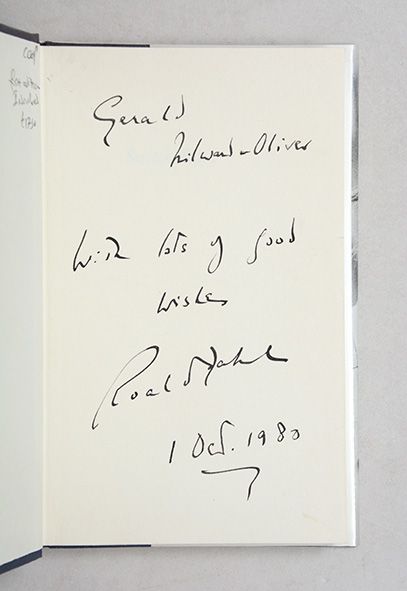 Gerald
Milward-Oliver
With lots of good
wishes
Roald Dahl
1 Oct. 1980